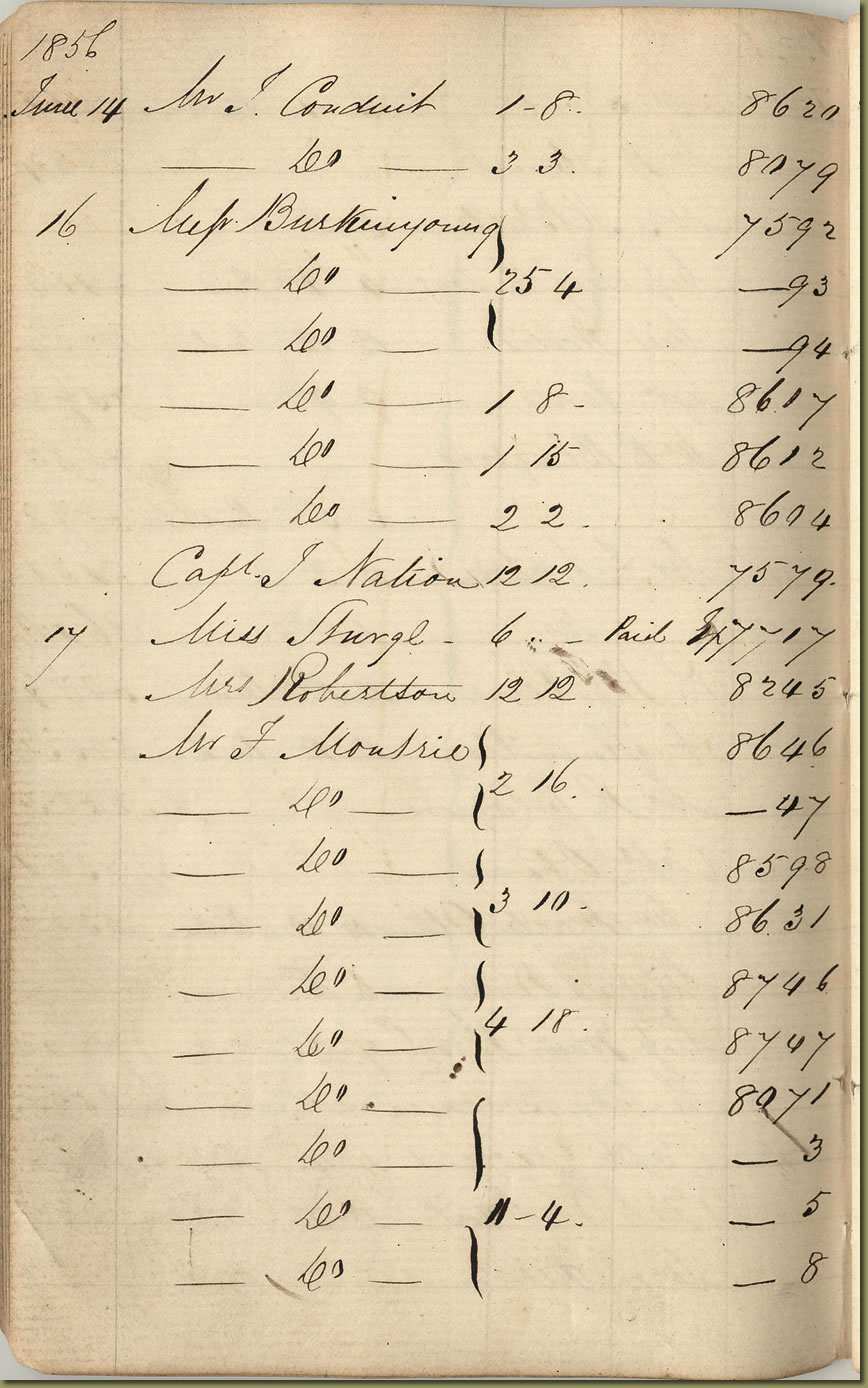 1856
June 14 Mr J. Conduit 1-8.. 8620
— Do — 3 3. 8079
16 Messrs Burkinyoung 7592
— Do — 25 4 —93
— Do — —94
— Do — 1 8 - 8617
— Do — 1 15 8612
— Do — 2 2. 8604
Capt. J Nation 12 12. 7579.
17 Miss Sturgl - 6 .. - Paid 7717
Mrs Robertson 12 12. 8245
Mr F Moutrie 8646
— Do — 2 16. —47
— Do — 8598
— Do — 3 10. 8631
— Do — 8746
— Do — 4 18. 8747
— Do — 8071
— Do — — 3
— Do — 11-4. — 5
— Do — — 8